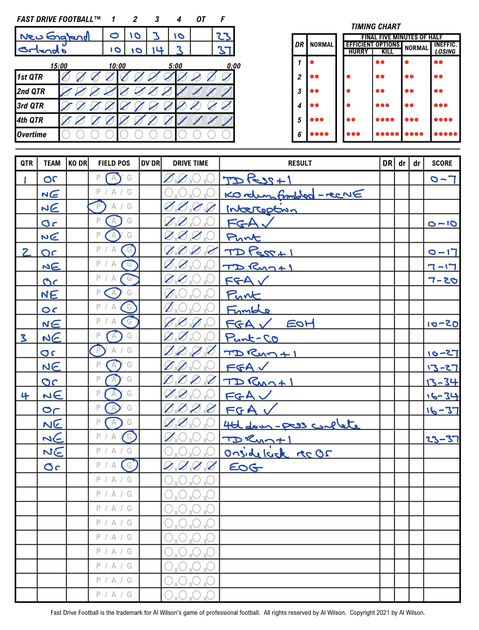 FAST DRIVE FOOTBALL™ 1 2 3 4 OT F
New England 0 10 3 10 23
Orlando 10 10 14 3 37
15:00 10:00 5:00 0:00
1st QTR
2nd QTR
3rd QTR
4th QTR
Overtime
TIMING CHART
FINAL FIVE MINUTES OF HALF
DR NORMAL EFFICIENT OPTIONS NORMAL INEFFIC.
HURRY KILL LOSING
1
2
3
4
5
6
QTR TEAM KO DR FIELD POS DV DR DRIVE TIME RESULT DR dr dr SCORE
1 Or P A G TD Pass +1 0-7
NE P / A / G KO return fumbled - rec NE
NE P A / G Interception
Or P A G FGA ✓ 0-10
NE P A G Punt
2 Or P / A G TD Pass +1 0-17
NE P / A G TD Run +1 7-17
Or P / A G FGA ✓ 7-20
NE P A G Punt
Or P / A G Fumble
NE P / A G FGA ✓ EOH 10-20
3 NE P A G Punt - CO
Or P A / G TD Run +1 10-27
NE P A G FGA ✓ 13-27
Or P A G TD Run +1 13-34
4 NE P A G FGA ✓ 16-34
Or P A G FGA ✓ 16-37
NE P A G 4th down - pass complete
NE P / A G TD Run +1 23-37
NE P / A / G Onside kick rec Or
Or P / A G EOG
P / A / G
P / A / G
P / A / G
P / A / G
P / A / G
P / A / G
P / A / G
P / A / G
P / A / G
Fast Drive Football is the trademark for Al Wilson's game of professional football. All rights reserved by Al Wilson. Copyright 2021 by Al Wilson.